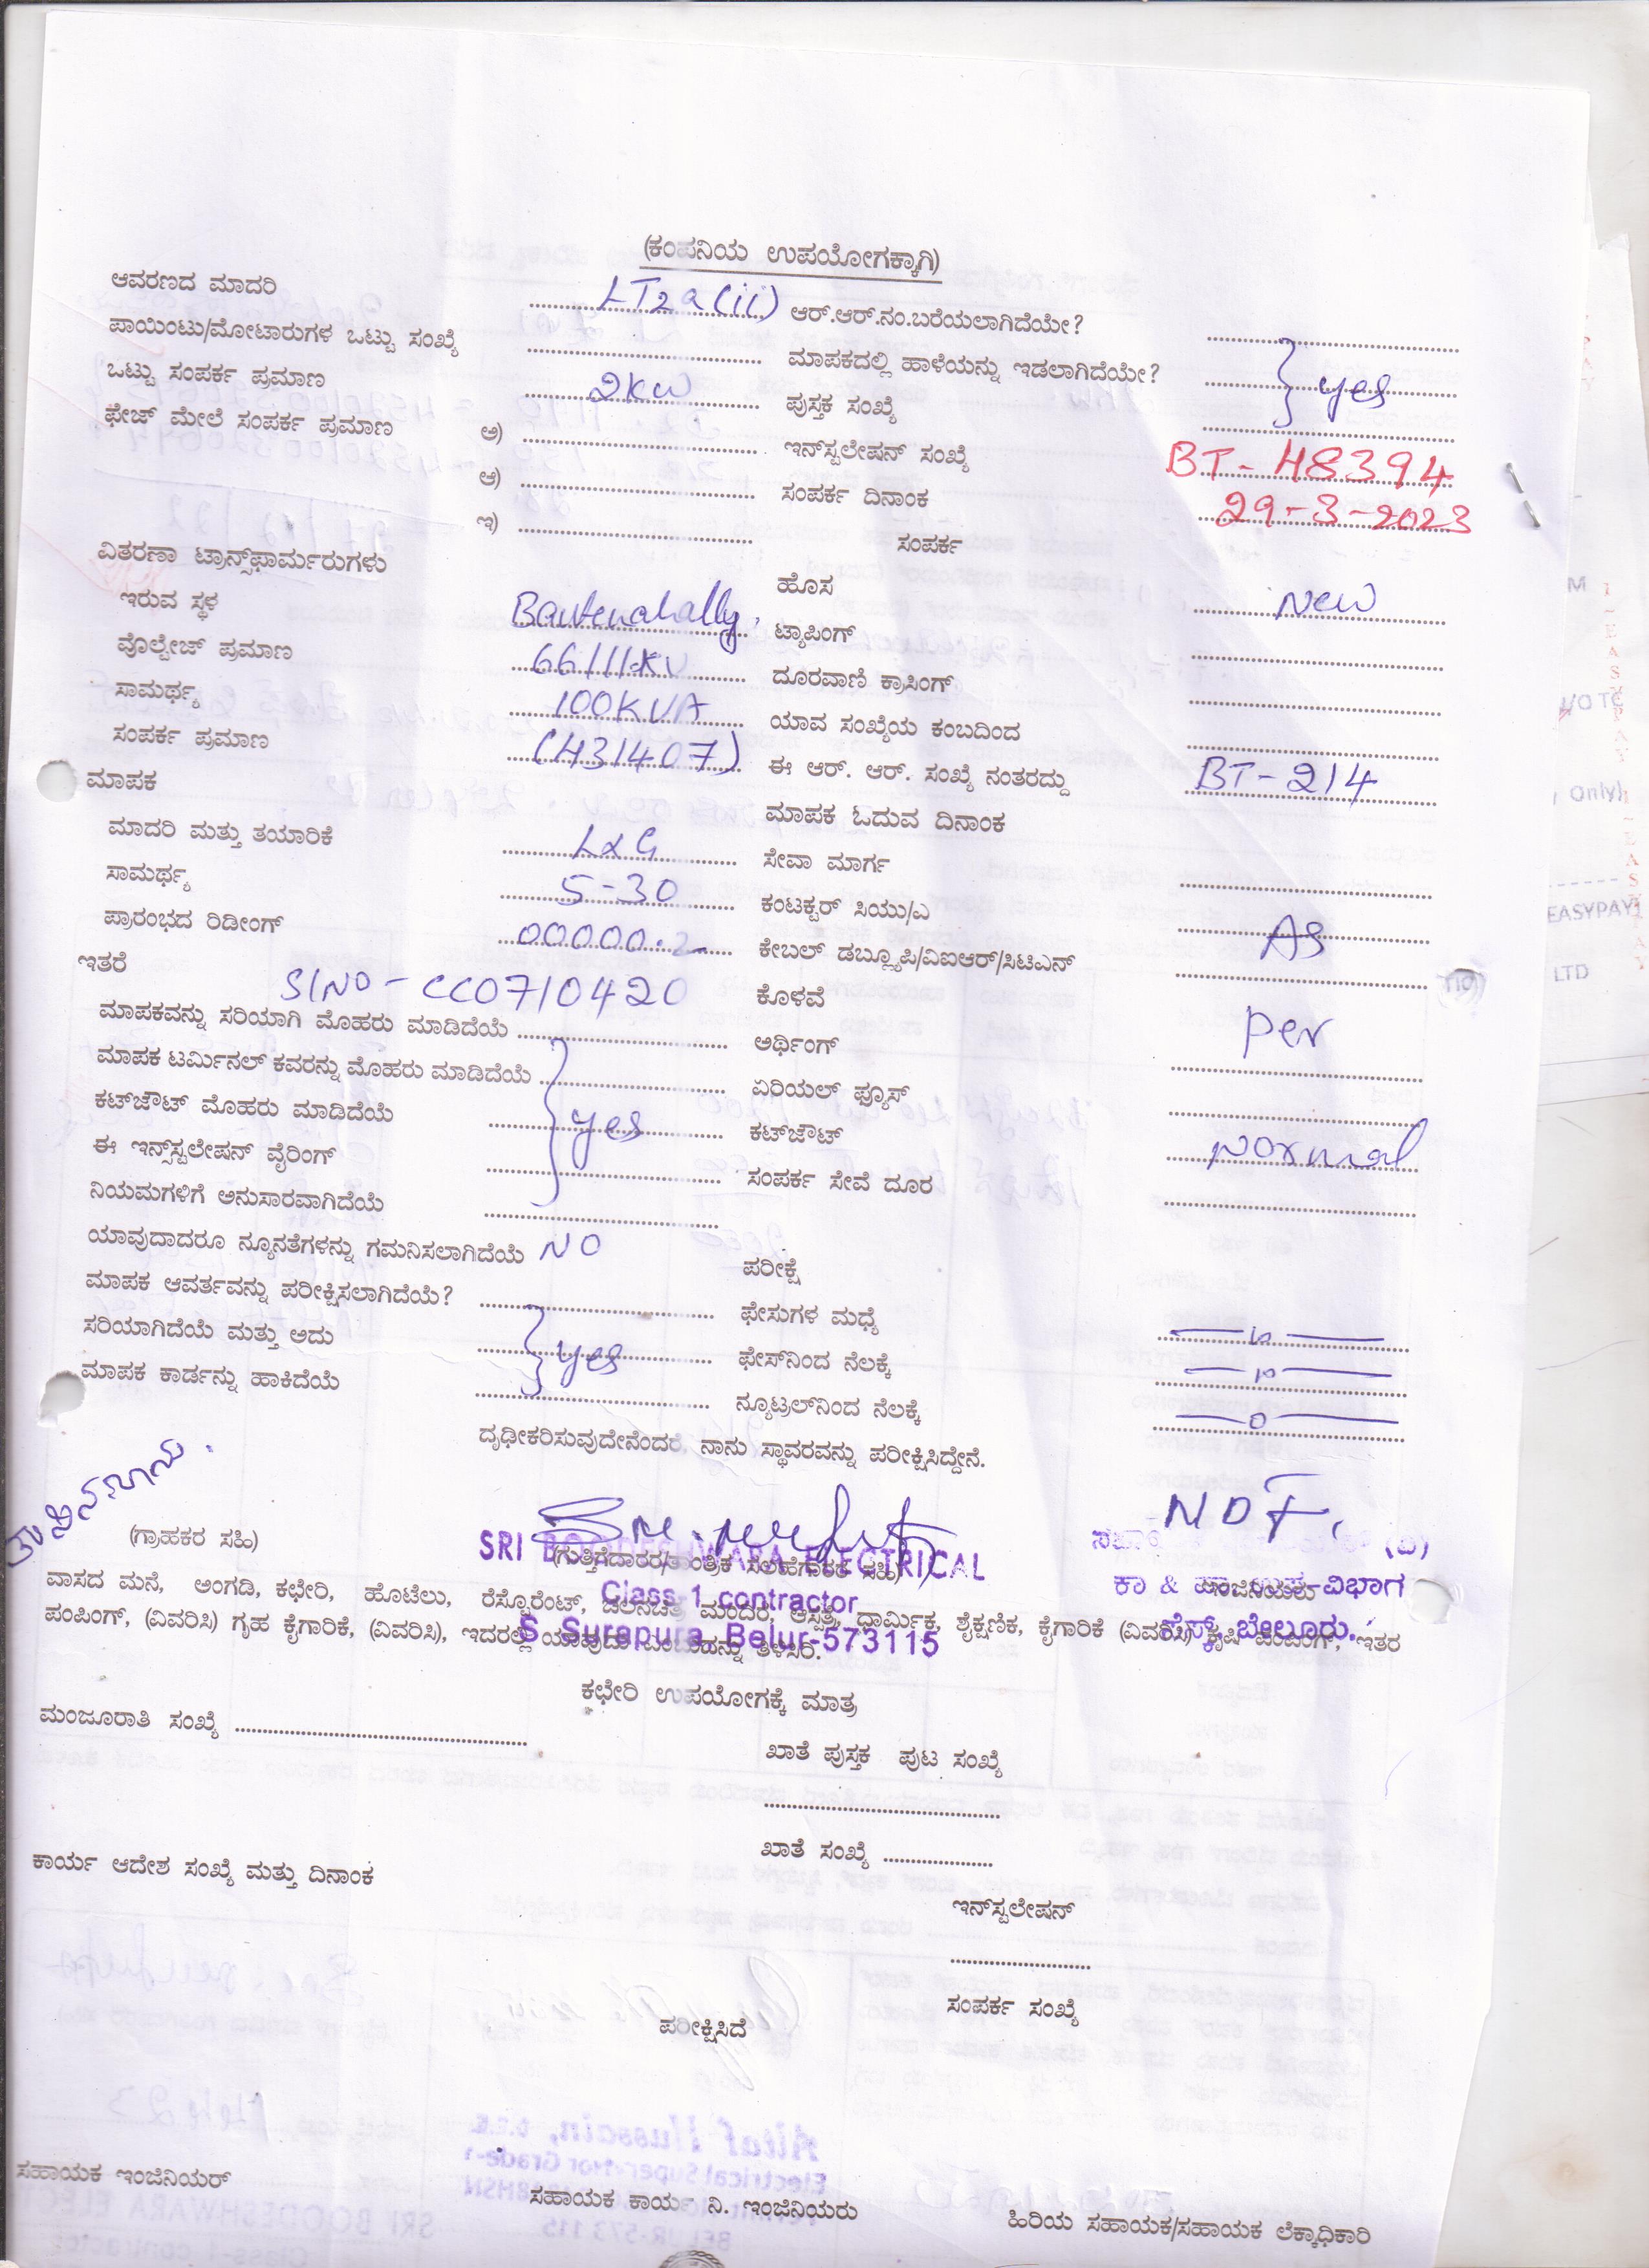 (ಕಂಪನಿಯ ಉಪಯೋಗಕ್ಕಾಗಿ)
ಆವರಣದ ಮಾದರಿ LT2a(ii) ಆರ್.ಆರ್.ನಂ.ಬರೆಯಲಾಗಿದೆಯೇ?
ಪಾಯಿಂಟು/ಮೋಟಾರುಗಳ ಒಟ್ಟು ಸಂಖ್ಯೆ ಮಾಪಕದಲ್ಲಿ ಹಾಳೆಯನ್ನು ಇಡಲಾಗಿದೆಯೇ? } yes
ಒಟ್ಟು ಸಂಪರ್ಕ ಪ್ರಮಾಣ 2kw ಪುಸ್ತಕ ಸಂಖ್ಯೆ
ಫೇಜ್ ಮೇಲೆ ಸಂಪರ್ಕ ಪ್ರಮಾಣ ಅ) ಇನ್‌ಸ್ಟಲೇಷನ್ ಸಂಖ್ಯೆ BT-48394
ಆ) ಸಂಪರ್ಕ ದಿನಾಂಕ 29-3-2023
ಇ) ಸಂಪರ್ಕ
ವಿತರಣಾ ಟ್ರಾನ್ಸ್‌ಫಾರ್ಮರುಗಳು ಹೊಸ New
ಇರುವ ಸ್ಥಳ Bantenahally, ಟ್ಯಾಪಿಂಗ್
ವೊಲ್ಟೇಜ್ ಪ್ರಮಾಣ 66/11KV ದೂರವಾಣಿ ಕ್ರಾಸಿಂಗ್
ಸಾಮರ್ಥ್ಯ 100KVA ಯಾವ ಸಂಖ್ಯೆಯ ಕಂಬದಿಂದ
ಸಂಪರ್ಕ ಪ್ರಮಾಣ (431407) ಈ ಆರ್. ಆರ್. ಸಂಖ್ಯೆ ನಂತರದ್ದು BT-214
ಮಾಪಕ ಮಾಪಕ ಓದುವ ದಿನಾಂಕ
ಮಾದರಿ ಮತ್ತು ತಯಾರಿಕೆ L&G ಸೇವಾ ಮಾರ್ಗ
ಸಾಮರ್ಥ್ಯ 5-30 ಕಂಟಕ್ಟರ್ ಸಿಯು/ಎ As
ಪ್ರಾರಂಭದ ರಿಡೀಂಗ್ 00000.2 ಕೇಬಲ್ ಡಬ್ಲ್ಯೂಪಿ/ವಿಐಆರ್/ಸಿಟಿಎನ್
ಇತರೆ Sl NO - CC0710420 ಕೊಳವೆ
ಮಾಪಕವನ್ನು ಸರಿಯಾಗಿ ಮೊಹರು ಮಾಡಿದೆಯೆ ಅರ್ಥಿಂಗ್ per
ಮಾಪಕ ಟರ್ಮಿನಲ್ ಕವರನ್ನು ಮೊಹರು ಮಾಡಿದೆಯೆ ಏರಿಯಲ್ ಫ್ಯೂಸ್
ಕಟ್‌ಔಟ್ ಮೊಹರು ಮಾಡಿದೆಯೆ } yes ಕಟ್‌ಔಟ್ Normal
ಈ ಇನ್ಸ್‌ಸ್ಟಲೇಷನ್ ವೈರಿಂಗ್ ಸಂಪರ್ಕ ಸೇವೆ ದೂರ
ನಿಯಮಗಳಿಗೆ ಅನುಸಾರವಾಗಿದೆಯೆ
ಯಾವುದಾದರೂ ನ್ಯೂನತೆಗಳನ್ನು ಗಮನಿಸಲಾಗಿದೆಯೆ NO ಪರೀಕ್ಷೆ
ಮಾಪಕ ಆವರ್ತವನ್ನು ಪರೀಕ್ಷಿಸಲಾಗಿದೆಯೆ? ಫೇಸುಗಳ ಮಧ್ಯೆ
ಸರಿಯಾಗಿದೆಯೆ ಮತ್ತು ಅದು } yes ಫೇಸ್‌ನಿಂದ ನೆಲಕ್ಕೆ
ಮಾಪಕ ಕಾರ್ಡನ್ನು ಹಾಕಿದೆಯೆ ನ್ಯೂಟ್ರಲ್‌ನಿಂದ ನೆಲಕ್ಕೆ
ದೃಢೀಕರಿಸುವುದೇನೆಂದರೆ, ನಾನು ಸ್ಥಾವರವನ್ನು ಪರೀಕ್ಷಿಸಿದ್ದೇನೆ.
(ಗ್ರಾಹಕರ ಸಹಿ)
SRI BOODESHWARA ELECTRICAL
(ಗುತ್ತಿಗೆದಾರರ/ತಾಂತ್ರಿಕ ಸಲಹೆಗಾರರ ಸಹಿ)
Class-1 contractor
S Surapura Belur-573115
ಕಾ & ಪಾ ಉಪ-ವಿಭಾಗ
ಬೇಲೂರು.
ವಾಸದ ಮನೆ, ಅಂಗಡಿ, ಕಛೇರಿ, ಹೊಟೆಲು, ರೆಸ್ಟೊರೆಂಟ್, ಚಲನಚಿತ್ರ ಮಂದಿರ, ಆಸ್ಪತ್ರೆ, ಧಾರ್ಮಿಕ, ಶೈಕ್ಷಣಿಕ, ಕೈಗಾರಿಕೆ (ವಿವರಿಸಿ) ಕೃಷಿ ಪಂಪಿಂಗ್, ಇತರ
ಪಂಪಿಂಗ್, (ವಿವರಿಸಿ) ಗೃಹ ಕೈಗಾರಿಕೆ, (ವಿವರಿಸಿ), ಇದರಲ್ಲಿ ಯಾವುದು ಎಂಬುದನ್ನು ತಿಳಿಸಿರಿ.
ಕಛೇರಿ ಉಪಯೋಗಕ್ಕೆ ಮಾತ್ರ
ಮಂಜೂರಾತಿ ಸಂಖ್ಯೆ
ಖಾತೆ ಪುಸ್ತಕ ಪುಟ ಸಂಖ್ಯೆ
ಖಾತೆ ಸಂಖ್ಯೆ
ಕಾರ್ಯ ಆದೇಶ ಸಂಖ್ಯೆ ಮತ್ತು ದಿನಾಂಕ
ಇನ್‌ಸ್ಟಲೇಷನ್
ಸಂಪರ್ಕ ಸಂಖ್ಯೆ
ಪರೀಕ್ಷಿಸಿದೆ
ಸಹಾಯಕ ಇಂಜಿನಿಯರ್ ಸಹಾಯಕ ಕಾರ್ಯ ನಿ. ಇಂಜಿನಿಯರು ಹಿರಿಯ ಸಹಾಯಕ/ಸಹಾಯಕ ಲೆಕ್ಕಾಧಿಕಾರಿ